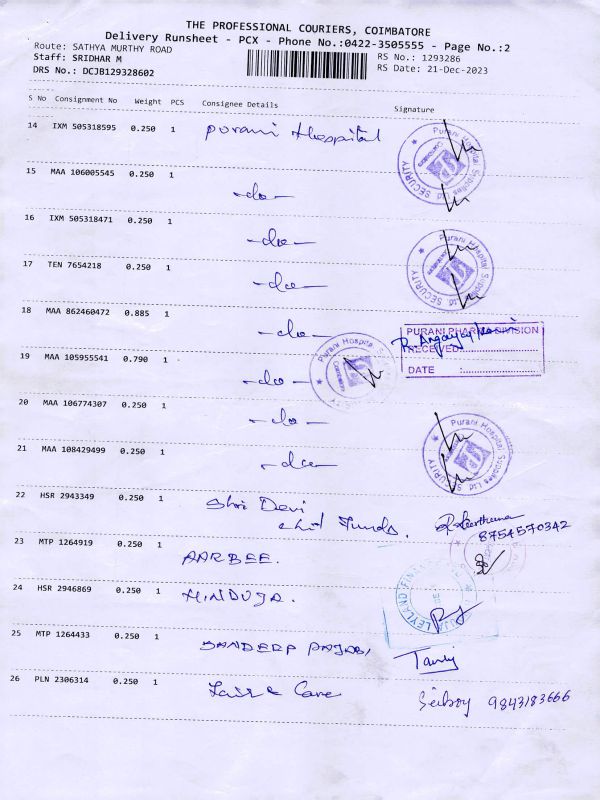 THE PROFESSIONAL COURIERS, COIMBATORE
Delivery Runsheet - PCX - Phone No.:0422-3505555 - Page No.:2
Route: SATHYA MURTHY ROAD
RS No.: 1293286
Staff: SRIDHAR M
RS Date: 21-Dec-2023
DRS No.: DCJB129328602
S No Consignment No Weight PCS Consignee Details Signature
14 IXM 505318595 0.250 1 Purani Hospital
Purani Hospital Supplies Ltd
SECURITY
15 MAA 106005545 0.250 1
-do-
16 IXM 505318471 0.250 1
-do-
Purani Hospital Supplies Ltd
SECURITY
17 TEN 7654218 0.250 1
-do-
18 MAA 862460472 0.885 1
-do-
PURANI PHARMA DIVISION
RECEIVED:
DATE :
Purani Hospital
19 MAA 105955541 0.790 1
-do-
20 MAA 106774307 0.250 1
-do-
Purani Hospital Supplies Ltd
SECURITY
21 MAA 108429499 0.250 1
-do-
22 HSR 2943349 0.250 1 Shri Devi
chit Funds.
8754570342
23 MTP 1264919 0.250 1
AARBEE.
24 HSR 2946869 0.250 1 HINDUJA.
LEYLAND FINANCE
25 MTP 1264433 0.250 1
SANDEEP PNJABI
26 PLN 2306314 0.250 1
9843183666